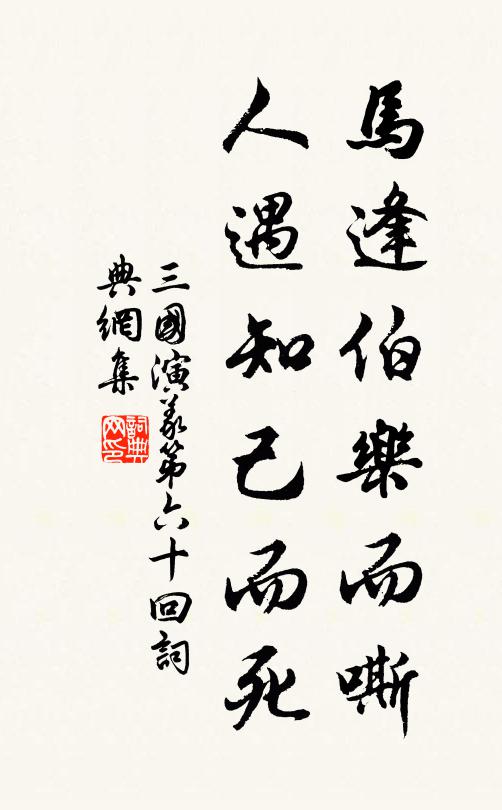 馬逢伯樂而嘶
人遇知己而死
三國演義第六十回詞
典網集
詞典
网印